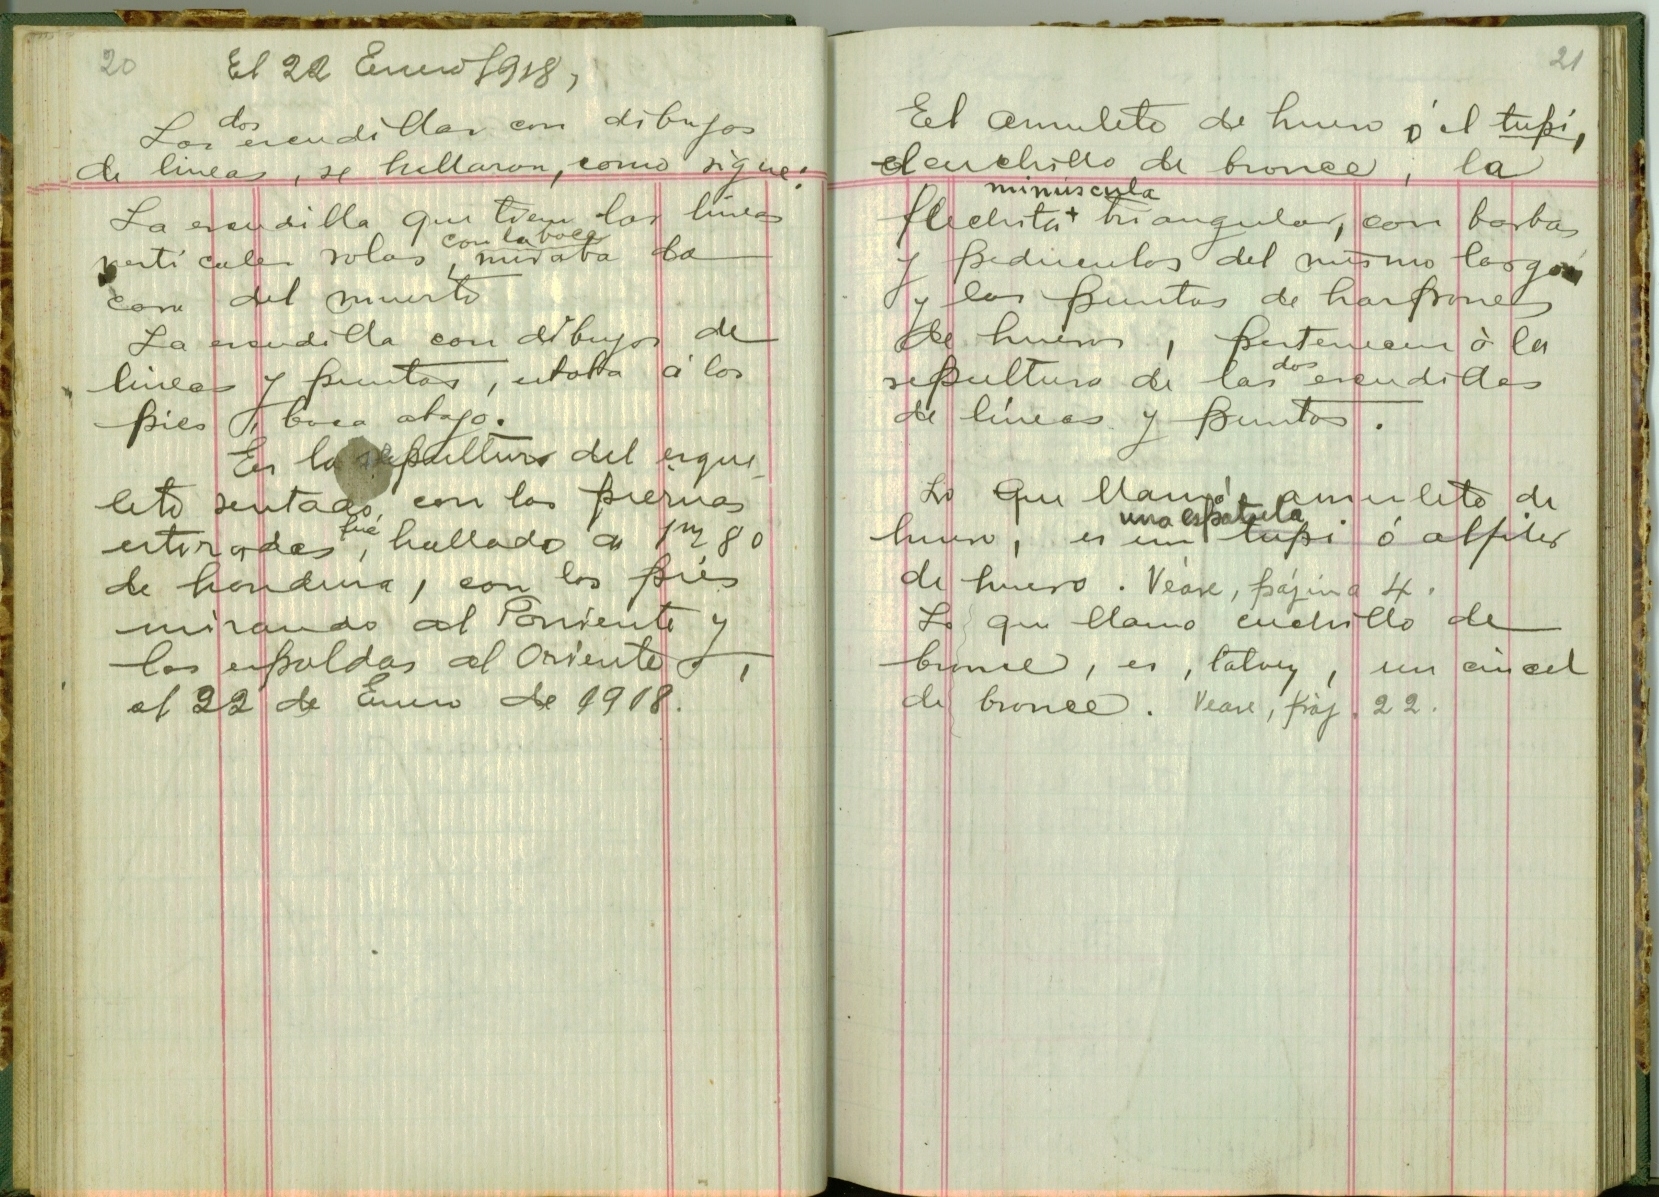 20
El 22 Enero 1918,
dos
Las escudillas con dibujos
de lineas, se hallaron, como sigue:
La escudilla que tiene las lineas
con la boca
verticales solas, miraba la
cara del muerto
La escudilla con dibujos de
lineas y puntos, estaba á los
pies, boca abajo.
En la sepultura del esque-
leto sentado, con las piernas
fué
estiradas, hallado a 1m 80
de hondura, con los piés
mirando al Poniente y
las espaldas al Oriente,
el 22 de Enero de 1918.
21
El amuleto de hueso ó el tupi,
el cuchillo de bronce, la
minúscula
flechita + triangular, con barbas
y pedúnculos del mismo largo
y las puntas de harpones
de hueso, pertenecen à la
dos
sepultura de las escudillas
de líneas y puntos.
Lo que llamo amuleto de
una espatula
hueso, es un tupi ó alfiler
de hueso. Véase, página 4.
Lo que llamo cuchillo de
bronce, es, talvez, un cincel
de bronce. Vease, pàg. 22.